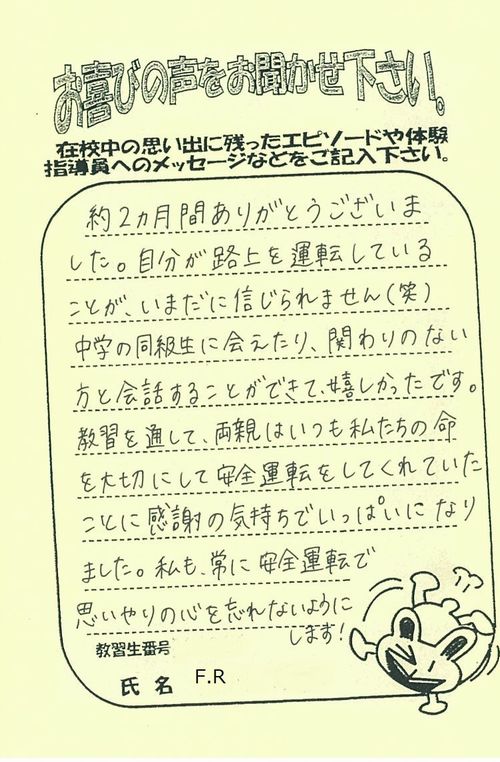 お喜びの声をお聞かせ下さい。
在校中の思い出に残ったエピソードや体験
指導員へのメッセージなどをご記入下さい。
約2カ月間ありがとうございま
した。自分が路上を運転している
ことが、いまだに信じられません(笑)
中学の同級生に会えたり、関わりのない
方と会話することができて、嬉しかったです。
教習を通して、両親はいつも私たちの命
を大切にして安全運転をしてくれていた
ことに感謝の気持ちでいっぱいになり
ました。私も、常に安全運転で
思いやりの心を忘れないように
します!
教習生番号
氏名 F.R